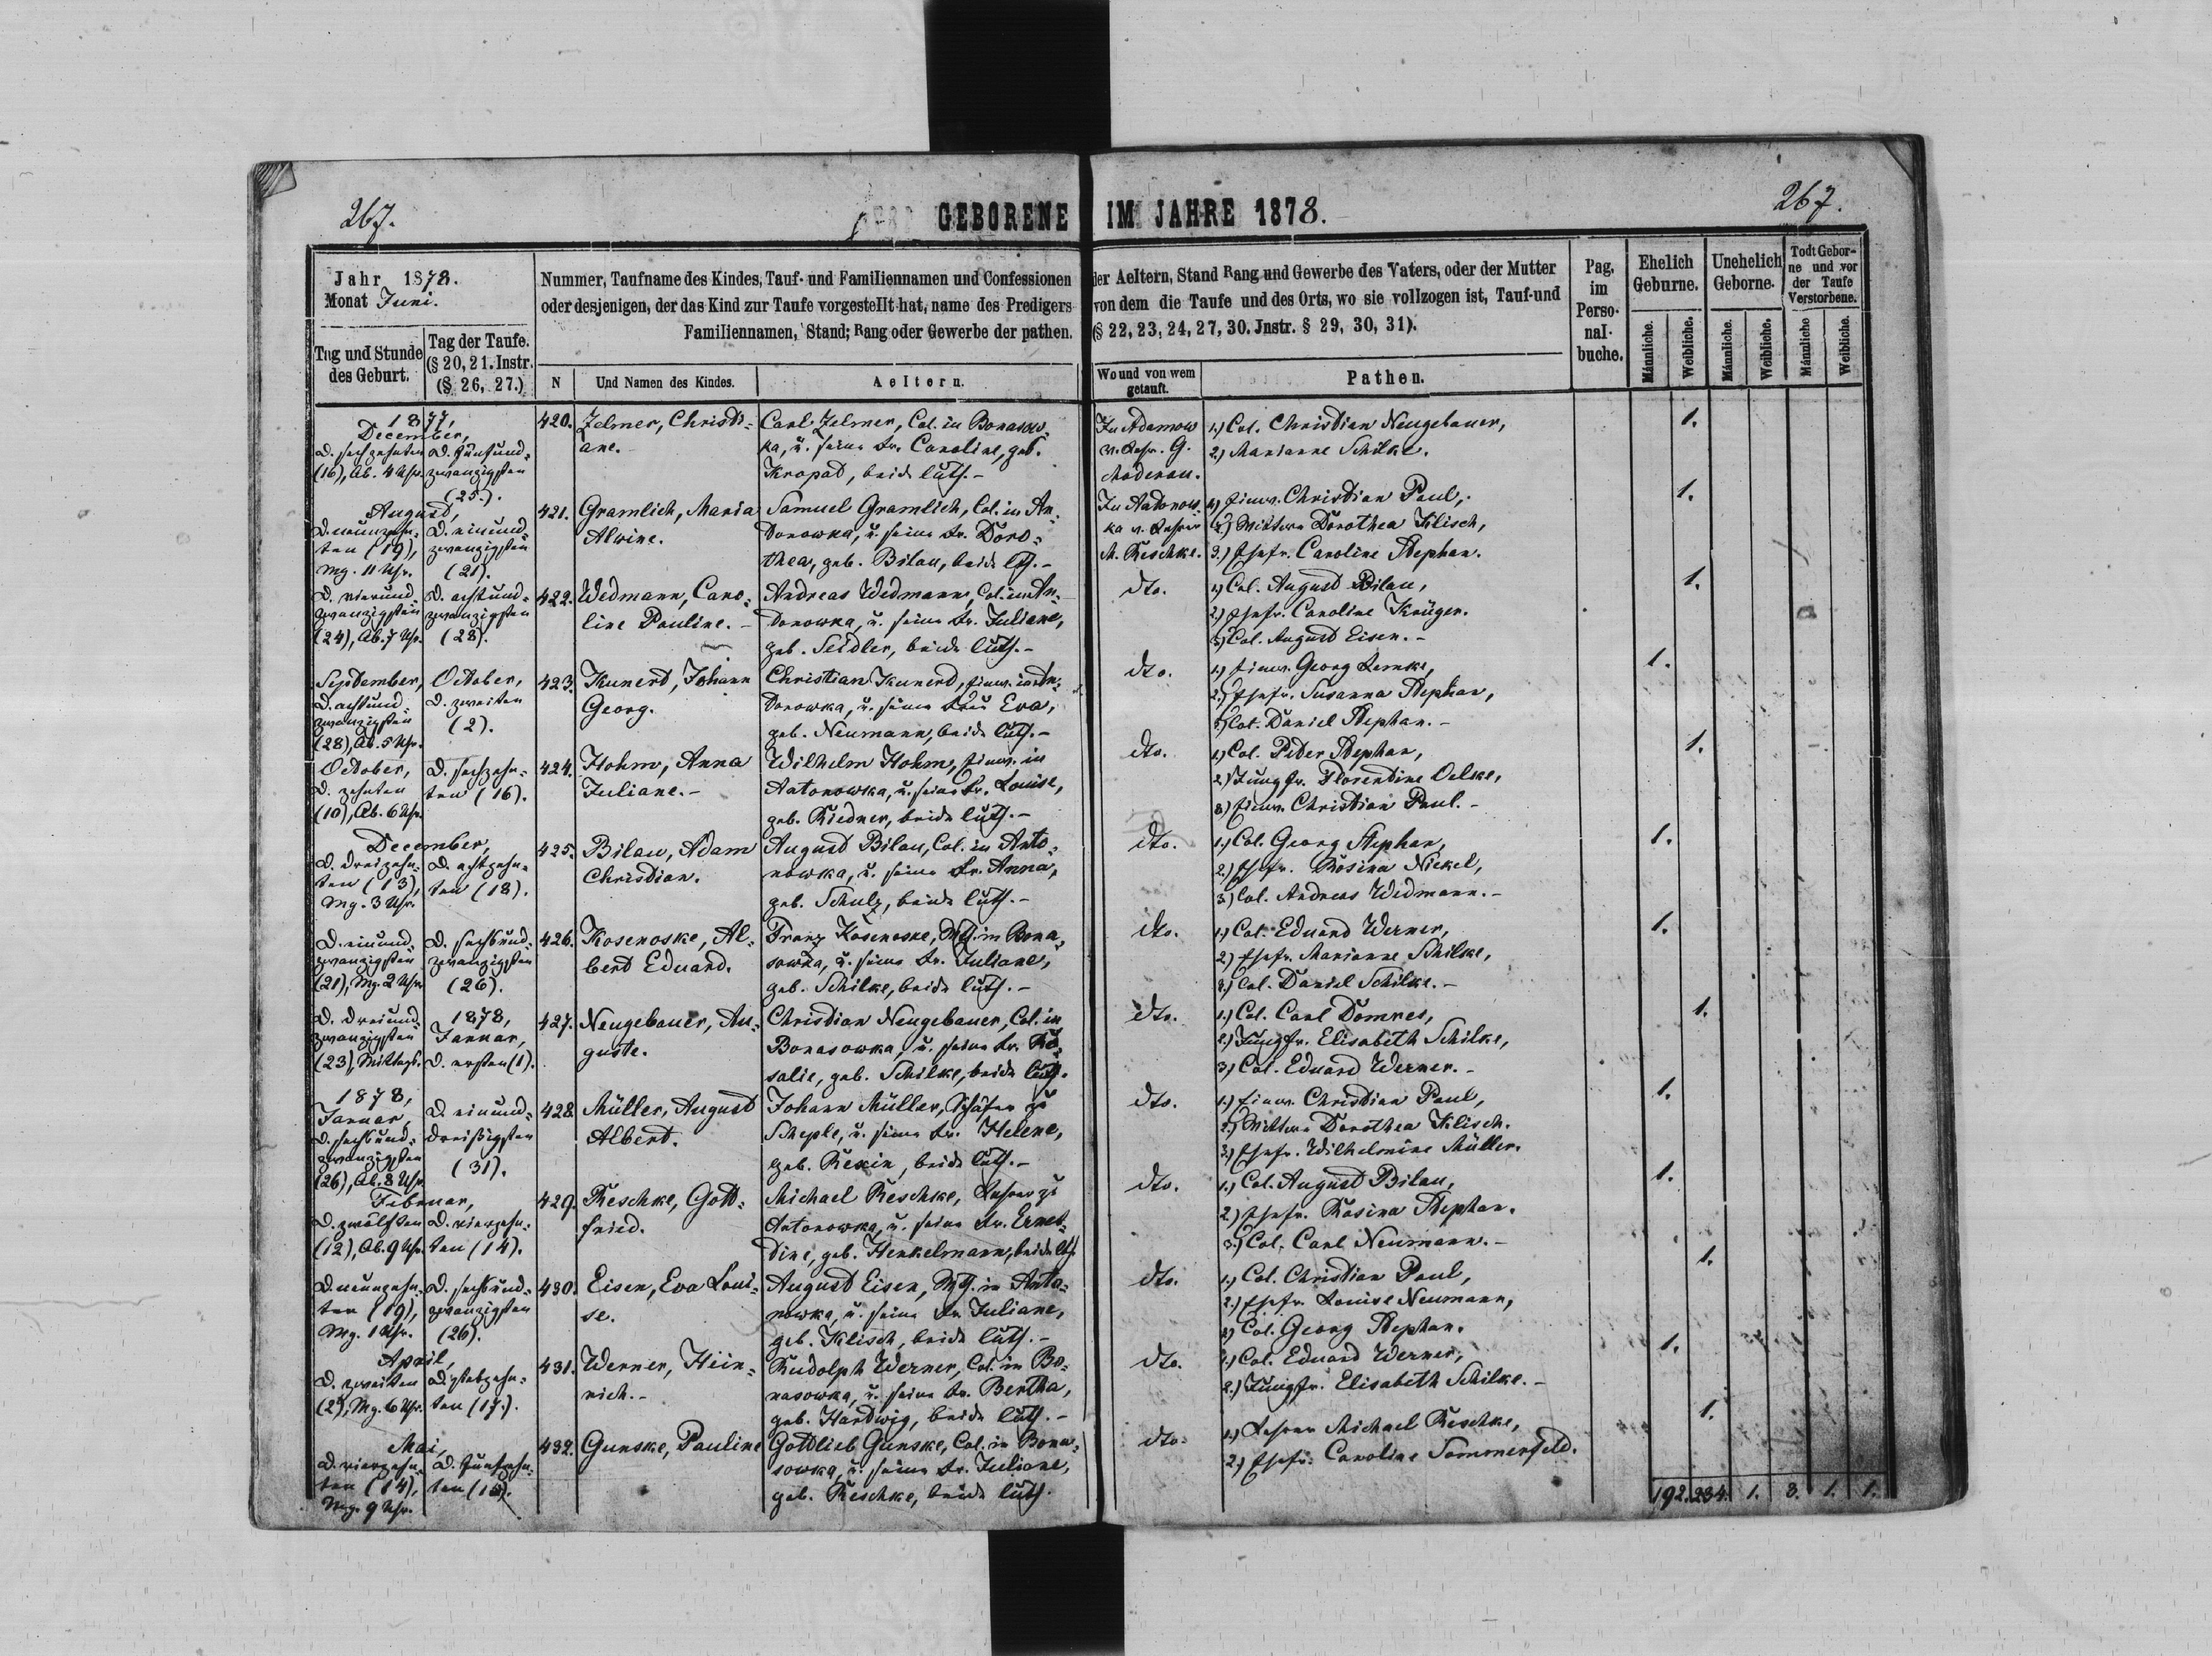 267.
GEBORENE IM JAHRE 1878.
267.
Jahr 1878.
Monat Juni.
Nummer, Taufname des Kindes, Tauf- und Familiennamen und Confessionen
oder desjenigen, der das Kind zur Taufe vorgestellt hat, name des Predigers
Familiennamen, Stand; Rang oder Gewerbe der pathen.
der Aeltern, Stand Rang und Gewerbe des Vaters, oder der Mutter
von dem die Taufe und des Orts, wo sie vollzogen ist, Tauf-und
(§ 22, 23, 24, 27, 30. Jnstr. § 29, 30, 31).
Pag.
im
Perso-
nal-
buche.
Ehelich
Geburne.
Unehelich
Geborne.
Todt Gebor-
ne und vor
der Taufe
Verstorbene.
Tag und Stunde
des Geburt.
Tag der Taufe.
(§ 20, 21. Instr.
(§ 26, 27.)
N
Und Namen des Kindes.
Aeltern.
Wo und von wem
getauft.
Pathen.
Männliche.
Weibliche.
Männliche.
Weibliche.
Männliche
Weibliche.
1877,
December,
D. sechzehnten
(16), Ab. 4 Uhr.
D. fünfund-
zwanzigsten
(25.).
420.
Zelmer, Christi-
ane.
Carl Zelmer, Col. in Bonasow-
ka, u. seine Fr. Caroline, geb.
Kropat, beide luth.-
In Adamow
v. Lehr. G.
1.) Col. Christian Neugebauer,
2.) Marianne Schilke.
1.
August,
D. neunzehn-
ten (19),
Mg. 11 Uhr.
D. einund-
zwanzigsten
(21).
421.
Gramlich, Maria
Alwine.
Samuel Gramlich, Col. in An-
tonowka, u. seine Fr. Doro-
thea, geb. Bilau, beide lth.-
In Antonow-
ka v. Lehrer
M. Reschke.
1.) Einw. Christian Paul,
2.) Wittwe Dorothea Klisch,
3.) Ehefr. Caroline Stephan.
1.
D. vierund-
zwanzigsten
(24), Ab. 7 Uhr.
D. achtund-
zwanzigsten
(28).
422.
Wedmann, Caro-
line Pauline.-
Andreas Wedmann, Col. in An-
tonowka, u. seine Fr. Juliane,
geb. Seidler, beide luth.-
dto.
1.) Col. August Bilau,
2.) Ehefr. Caroline Krüger.
3.) Col. August Eisen.-
1.
September,
D. achtund-
zwanzigsten
(28), Ab. 5 Uhr.
October,
D. zweiten
(2).
423.
Kunert, Johann
Georg.
Christian Kunert, Einw. in An-
tonowka, u. seine Frau Eva,
geb. Neumann, beide luth.-
dto.
1.) Einw. Georg Lemke,
2.) Ehefr. Susanna Stephan,
3.) Col. Daniel Stephan.-
1.
October,
D. zehnten
(10), Ab. 6 Uhr.
D. sechzehn-
ten (16).
424.
Hohm, Anna
Juliane.-
Wilhelm Hohm, Einw. in
Antonowka, u. seine Fr. Louise,
geb. Riedner, beide luth.-
dto.
1.) Col. Peter Stephan,
2.) Jungfr. Florentine Oelke,
3.) Einw. Christian Paul.-
1.
December,
D. dreizehn-
ten (13),
Mg. 3 Uhr.
D. achtzehn-
ten (18).
425.
Bilau, Adam
Christian.
August Bilau, Col. in Anto-
nowka, u. seine Fr. Anna,
geb. Schulz, beide luth.-
dto.
1.) Col. Georg Stephan,
2.) Ehefr. Rosina Nickel,
3.) Col. Andreas Wedmann.-
1.
D. einund-
zwanzigsten
(21), Mg. 2 Uhr.
D. sechsund-
zwanzigsten
(26).
426.
Kosenoske, Al-
bert Eduard.
Franz Kosenoske, in Bona-
sowka, u. seine Fr. Juliane,
geb. Schilke, beide luth.-
dto.
1.) Col. Eduard Werner,
2.) Ehefr. Marianne Schilke,
3.) Col. Daniel Schilke.-
1.
D. dreiund-
zwanzigsten
(23), Mittags.
1878,
Januar,
D. ersten (1).
427.
Neugebauer, Au-
guste.
Christian Neugebauer, Col. in
Bonasowka, u. seine Fr. Ro-
salie, geb. Schilke, beide luth.
dto.
1.) Col. Carl Domres,
2.) Jungfr. Elisabeth Schilke,
3.) Col. Eduard Werner.-
1.
1878,
Januar,
D. sechsund-
zwanzigsten
(26), Ab. 8 Uhr.
D. einund-
dreißigsten
(31).
428.
Müller, August
Albert.
Johann Müller, Schäfer zu
Scheple, u. seine Fr. Helene,
geb. Rexin, beide luth.-
dto.
1.) Einw. Christian Paul,
2.) Wittwe Dorothea Klisch.
3.) Ehefr. Wilhelmine Müller.
1.
Februar,
D. zwölften
(12), Ab. 9 Uhr.
D. vierzehn-
ten (14).
429.
Reschke, Gott-
fried.
Michael Reschke, Lehrer zu
Antonowka, u. seine Fr. Ernes-
tine, geb. Henkelmann, beide lth.
dto.
1.) Col. August Bilau,
2.) Ehefr. Rosina Stephan.
3.) Col. Carl Neumann.-
1.
D. neunzehn-
ten (19),
Mg. 1 Uhr.
D. sechsund-
zwanzigsten
(26).
430.
Eisen, Eva Loui-
se.
August Eisen, in Anto-
nowka, u. seine Fr. Juliane,
geb. Klisch, beide luth.-
dto.
1.) Col. Christian Paul,
2.) Ehefr. Louise Neumann,
3.) Col. Georg Stephan.
1.
April,
D. zweiten
(2), Mg. 6 Uhr.
D. siebzehn-
ten (17.).
431.
Werner, Hein-
rich.-
Rudolph Werner, Col. in Bo-
nasowka, u. seine Fr. Bertha,
geb. Hartwig, beide luth.-
dto.
1.) Col. Eduard Werner,
2.) Jungfr. Elisabeth Schilke.-
1.
Mai,
D. vierzehn-
ten (14),
Mg. 9 Uhr.
D. fünfzehn-
ten (15).
432.
Gunske, Pauline
Gottlieb Gunske, Col. in Bona-
sowka, u. seine Fr. Juliane,
geb. Reschke, beide luth.
dto.
1.) Lehrer Michael Reschke,
2.) Ehefr. Caroline Sommerfeld.
1.
192. 234. 1. 3. 1. 1.